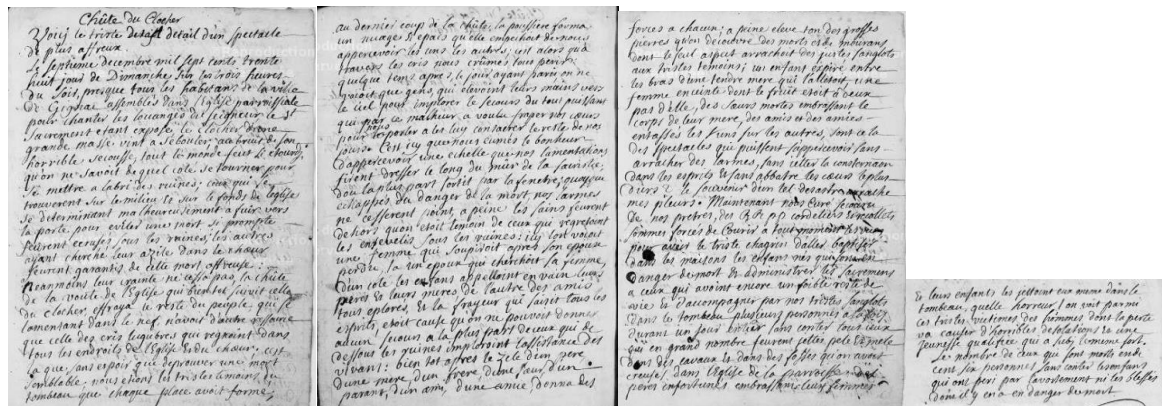 Chûte du Clocher
Voicy le triste detail d'un spectacle
de plus affreux.
Le septieme decembre mil sept cents trente
huit jour de Dimanche sur les trois heures
du soir, presque tous les habitans de la ville
de Gignac assemblés dans l'Eglise parroissiale
pour chanter les louanges du seigneur le st
sacrement etant exposé, le clocher d'une
grande masse vint a s'ebouler au bruit de son
horrible secousse, tout le monde feut si etourdy
qu'on ne savoit de quel coté se tourner pour
se mettre a l'abri des ruines; ceux qui se
trouverent sur le milieu et sur le fonds de l'eglise
se determinant malheureusement a fuir vers
la porte pour eviler une mort si prompte
feurent ecrasés sous les ruines; les autres
ayant cherché leur azile dans le chœur
feurent garantis de cette mort affreuse:
Neanmoins leur crainte ne cessa pas, la chûte
de la voute de l'Eglise qui bientot suivit celle
du clocher effraya le reste du peuple qui se
lamentant dans le nef n'avoit d'autre
que celle des cris lugubres qui regnoient dans
tous les endroits de l'Eglise et du chœur; c'est
la que, sans espoir que d'eprouver une mort
semblable, nous etions les tristes temoins du
tombeau que chaque place avoit formé,
au dernier coup de la chûte; la poussiere forma
un nuage si epais qu'elle empechoit de nous
appercevoir les uns les autres; c'est alors qu'à
travers les cris nous crûmes tous perir:
quelque tems apres, le jour ayant paru on ne
voioit que gens, qui elevoient leurs mains vers
le ciel pour implorer le secours du tout puissant
qui par ce malheur a voulu fraper nos cœurs
pour nous porter a les luy consacrer le reste de nos
jours. C'est icy que nous eumes le bonheur
d'appercevoir une echelle que nos lamentations
firent dresser le long du mur de la sacristie;
d'ou la plus part sortit par la fenetre; quoyque
echappés du danger de la mort, nos larmes
ne cesserent point, a peine les sains feurent
dehors qu'on etoit temoin de ceux qui regretoint
les ensevelis sous les ruines: icy l'on voioit
une femme qui soupiroit apres son epoux
perdu, la un epoux qui cherchoit sa femme,
d'un coté les enfans appelloient en vain leurs
peres et leurs meres de l'autre des amis
tous eplorés, et la frayeur qui saisit tous les
esprits, etoit cause qu'on ne pouvoit donner
aucun secours a la plus part de ceux qui de
dessous les ruines imploroint l'assistance des
vivans: bien tot apres le zele d'un pere,
d'une mere, d'un frere, d'une sœur, d'un
parant, d'un ami, d'une amie donna des
forces a chacun; a peine eleve t'on des grosses
pierres qu'on decouvre des morts et des mourans
dont le seul aspect arrachoit des justes sanglots
aux tristes temoins; un enfant expiré entre
les bras d'une tendre mere qui l'alletoit, une
femme enceinte dont le fruit etoit a deux
pas d'elle, des sœurs mortes embrassant le
corps de leur mere, des amis et des amies
entassés les uns sur les autres, sont ce la
des spectacles qui puissent s'appercevoir sans
arracher des larmes, sans jetter la consternaon
dans les esprits et sans abbatre les cœurs le plus
durs? le souvenir d'un tel desastre arrache
mes pleurs. Maintenant nos Curé secouru
de nos pretres, des RR. PP. cordeliers et recollets
sommes forcés de courir a tout moment
pour avoir le triste chagrin d'aller baptiser
dans les maisons les enfans nés qui sont en
danger de mort et administrer les sacremens
a ceux qui avoint encore un foible reste de
vie et d'accompagner par nos tristes sanglots
dans le tombeau plusieurs personnes a la fois
durant un jour entier sans conter tous ceux
qui en grand nombre feurent jettés pele et mele
dans des cavaux et dans des fosses qu'on avoit
creusé dans l'Eglise de la parroisse: des
peres infortunés embrassant leurs femmes
et leurs enfants les jettoint eux meme dans le
tombeau, quelle horreur! on voit parmi
ces tristes victimes des hommes dont la perte
va causer d'horribles desolations et une
jeunesse qualifiée qui a suby le meme sort.
Le nombre de ceux qui sont morts est de
cent six personnes sans conter les enfans
qui ont peri par l'avortement ni les blessés
dont il y en a en danger de mort